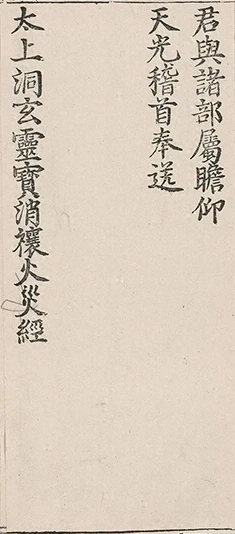 君與諸部屬瞻仰
天光稽首奉送
太上洞玄靈寶消禳火災經